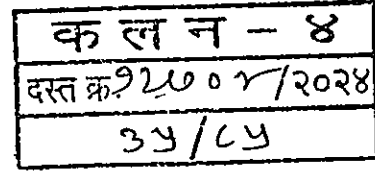 क ल न - ४
दस्त क्र.१२७०४/२०२४
३५/८५